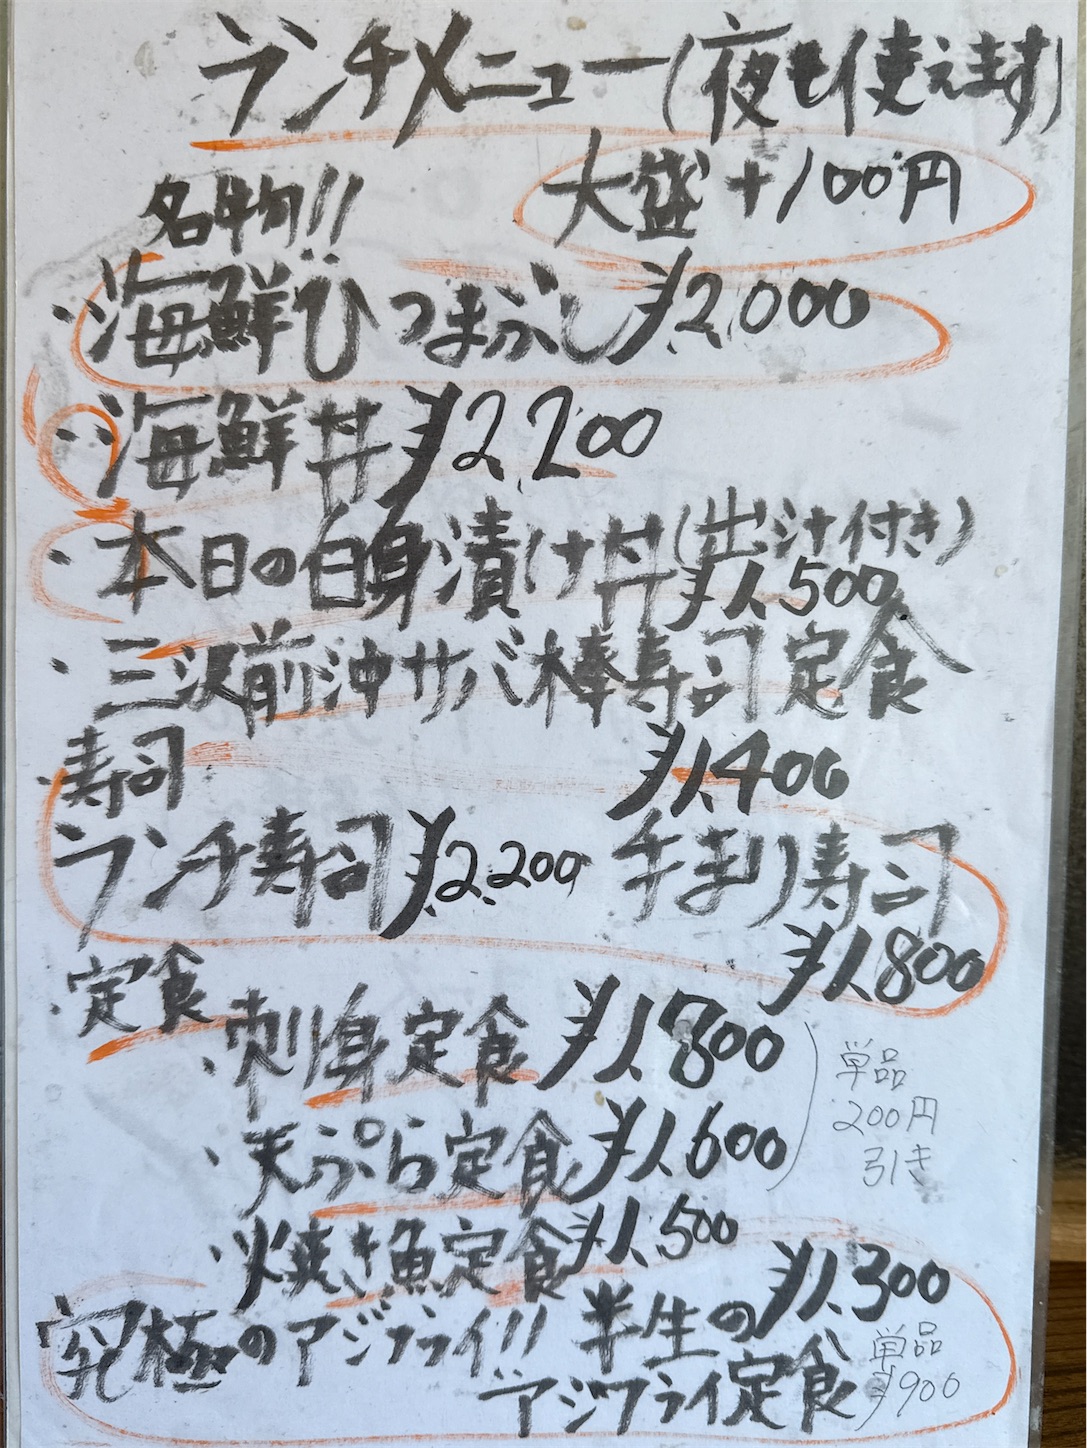 ランチメニュー(夜も使えます)
大盛+100円
名物!!
・海鮮ひつまぶし ¥2,000
・海鮮丼 ¥2,200
・本日の白身漬け丼(出汁付き)
¥1,500
・三沢前沖サバ棒寿司定食
¥1,400
・寿司
ランチ寿司 ¥2,200 手まり寿司
¥1,800
・定食
・刺身定食 ¥1,800
・天ぷら定食 ¥1,600
単品
200円
引き
・焼き魚定食 ¥1,500
究極のアジフライ!! 半生の
アジフライ定食
¥1,300
単品
¥900